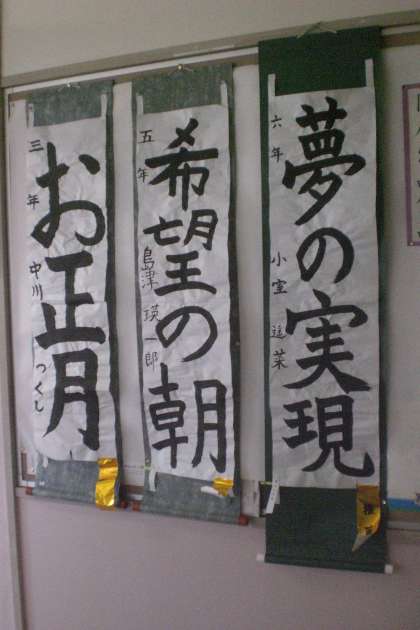 夢の実現
六年
希望の朝
五年 島津瑛一郎
お正月
三年 中川つくし